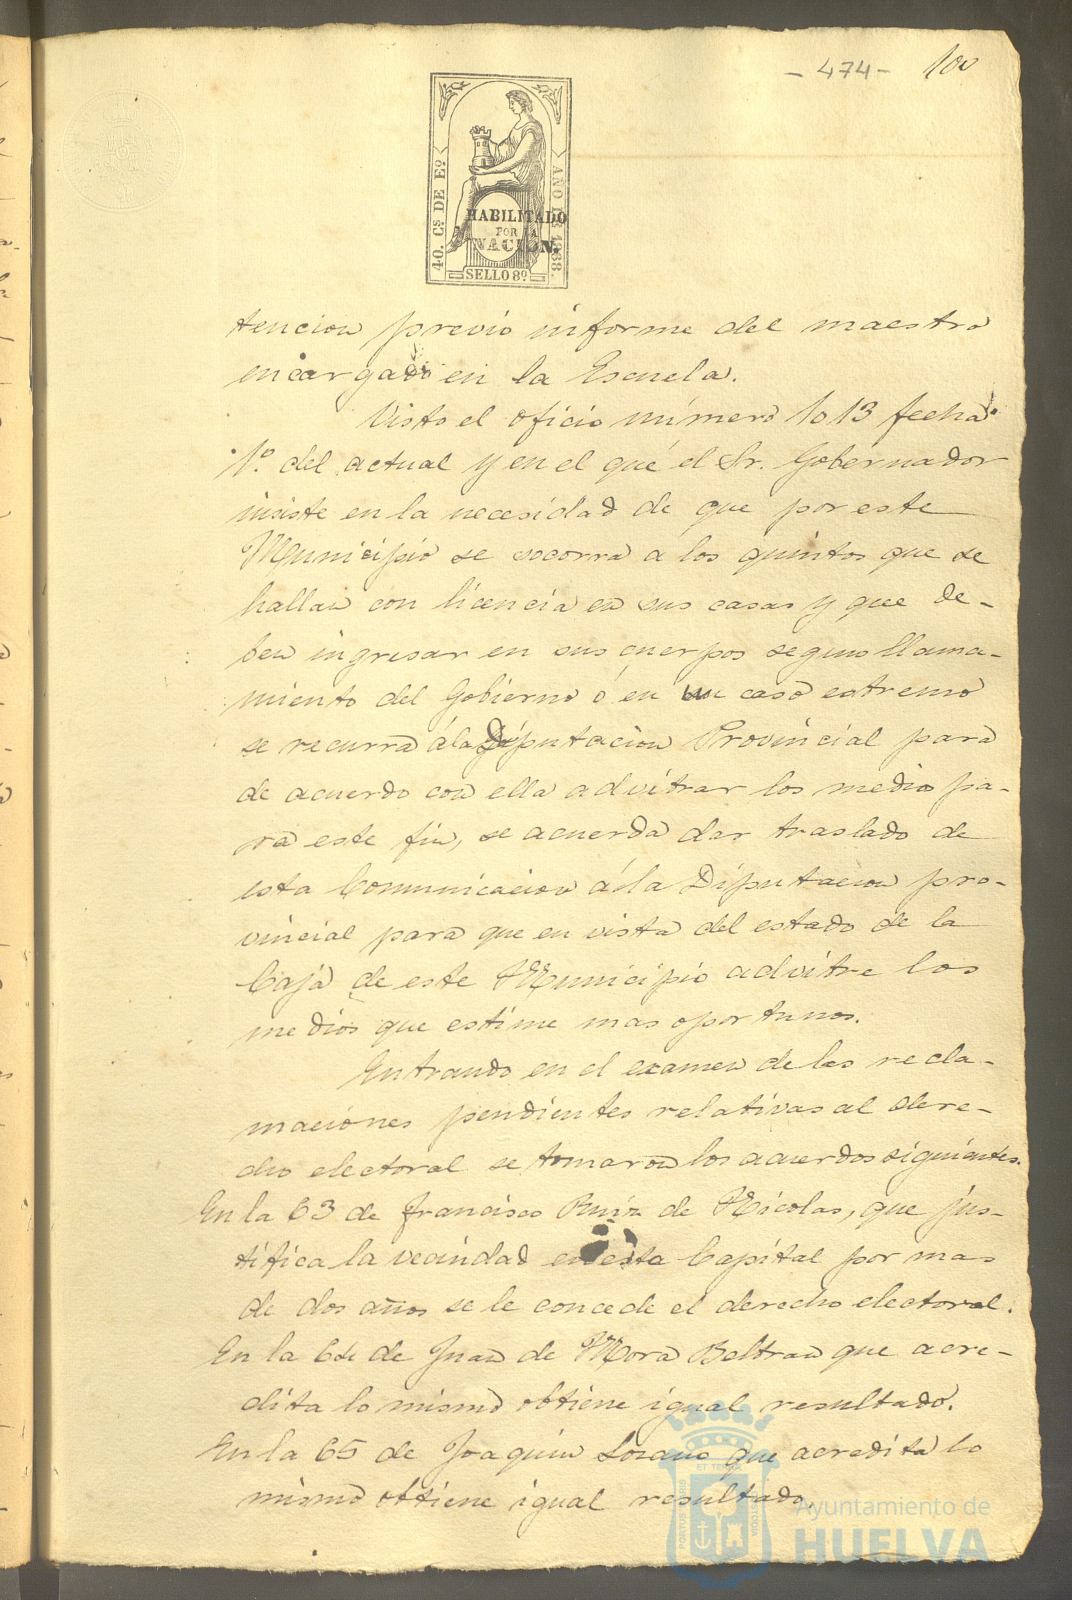 - 474 - 100
40. Cs DE Eo
AÑO DE 1868.
HABILITADO
POR LA
NACION.
SELLO 8º
tencion previo informe del maestro
encargado en la Escuela.
Visto el oficio número 1013 fecha
1º. del actual y en el que el Sr. Gobernador
insiste en la necesidad de que por este
Municipio se socorra á los quintos que se
hallan con licencia en sus casas y que de-
ben ingresar en sus cuerpos segun llama-
miento del Gobierno ó en un caso estremo
se recurra á la Diputacion Provincial para
de acuerdo con ella advitrar los medio pa-
ra este fin, se acuerda dar traslado de
esta Comunicacion á la Diputacion pro-
vincial para que en vista del estado de la
Caja de este Municipio advitre los
medios que estime mas oportunos.
Entrando en el examen de las recla-
maciones pendientes relativas al dere-
cho electoral se tomaron los acuerdos siguientes.
En la 63 de Francisco Ruiz de Nicolas, que jus-
tifica la vecindad en esta Capital por mas
de dos años se le concede el derecho electoral.
En la 64 de Juan de Mora Beltran que acre-
dita lo mismo obtiene igual resultado.
En la 65 de Joaquin Lozano que acredita lo
mismo obtiene igual resultado.
PORTUS MARIS
ET TERRAE
CUSTODIA
Ayuntamiento de
HUELVA